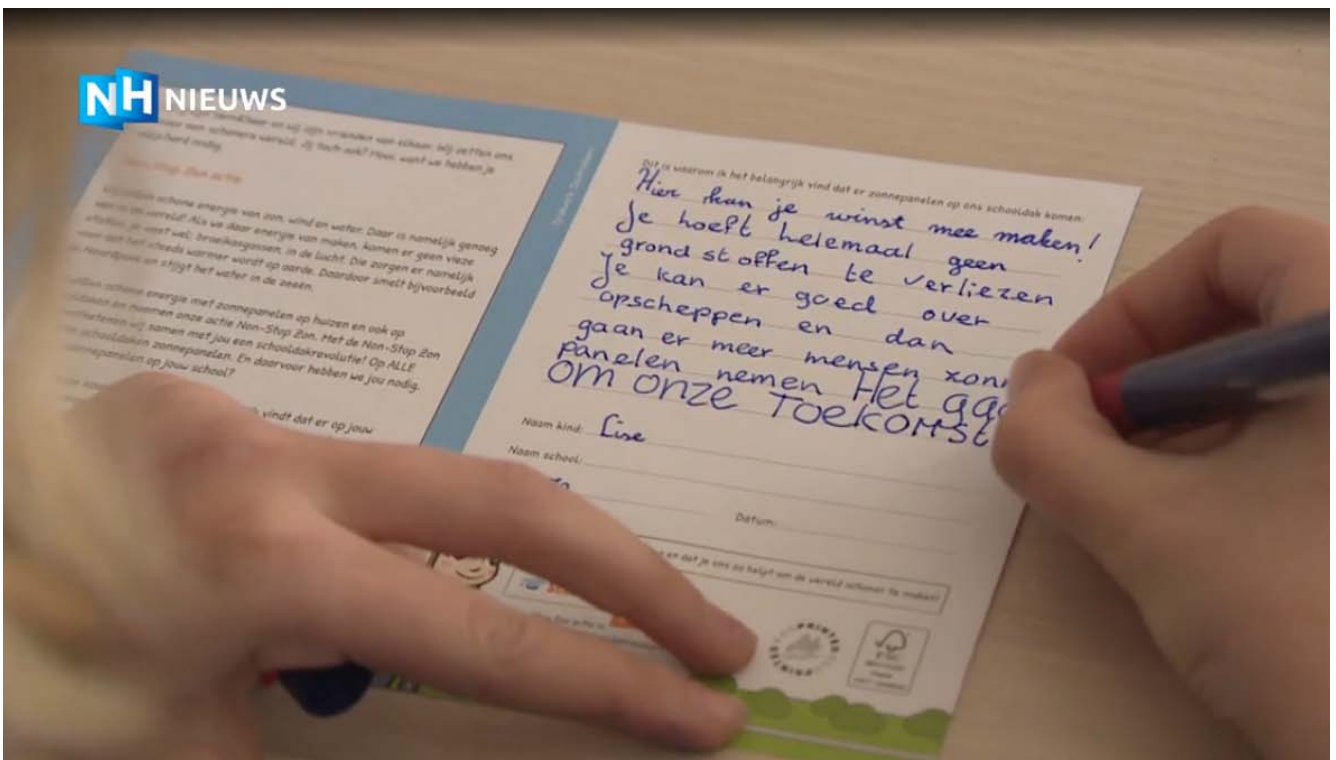 NH NIEUWS
voor een schonere wereld. Jij toch ook? Mooi, want we hebben je
keihard nodig.
schone energie van zon, wind en water. Daar is namelijk genoeg
van in de wereld! Als we daar energie van maken, komen er geen vieze
stoffen, je weet wel: broeikasgassen, in de lucht. Die zorgen er namelijk
voor dat het steeds warmer wordt op aarde. Daardoor smelt bijvoorbeeld
de Noordpool en stijgt het water in de zeeën.
schone energie met zonnepanelen op huizen en ook op
en noemen onze actie Non-Stop Zon. Met de Non-Stop Zon
wij samen met jou een schooldakrevolutie! Op ALLE
schooldaken zonnepanelen. En daarvoor hebben we jou nodig.
zonnepanelen op jouw school?
vindt dat er op jouw
Dit is waarom ik het belangrijk vind dat er zonnepanelen op ons schooldak komen:
Hier kan je winst mee maken!
Je hoeft helemaal geen
grondstoffen te verliezen
Je kan er goed over
opscheppen en dan
gaan er meer mensen zonn
panelen nemen Het gaa
om onze Toekomst
Naam kind: Lise
Naam school:
Datum:
en dat je ons zo helpt om de wereld schoner te maken!
FSC